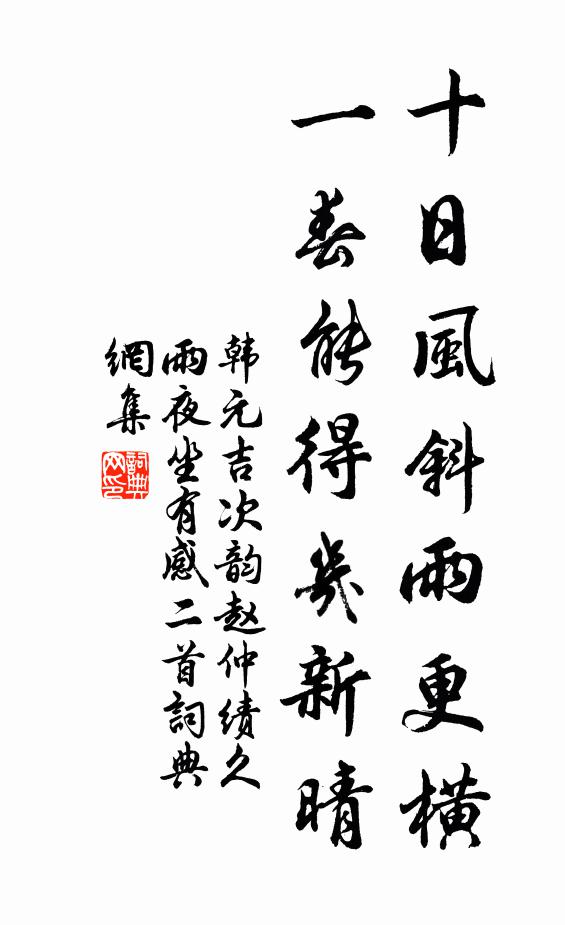 十日風斜雨更橫
一春能得幾新晴
韩元吉次韵赵仲绩久
雨夜坐有感二首詞典
網集
詞典
网印